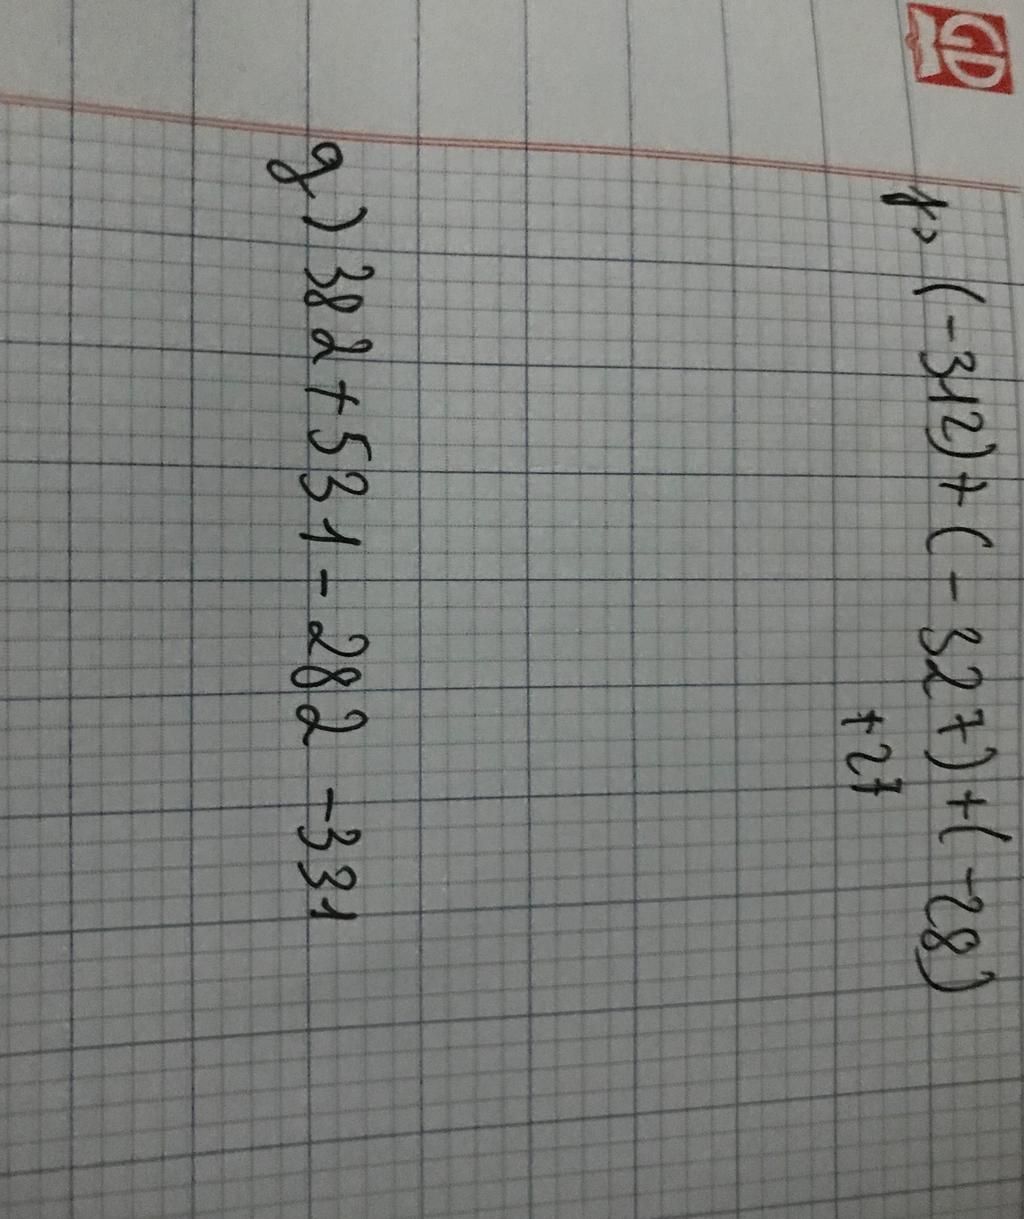 GD
f) (-312) + (-327) + (-28)
+27
g) 382 + 531 - 282 - 331